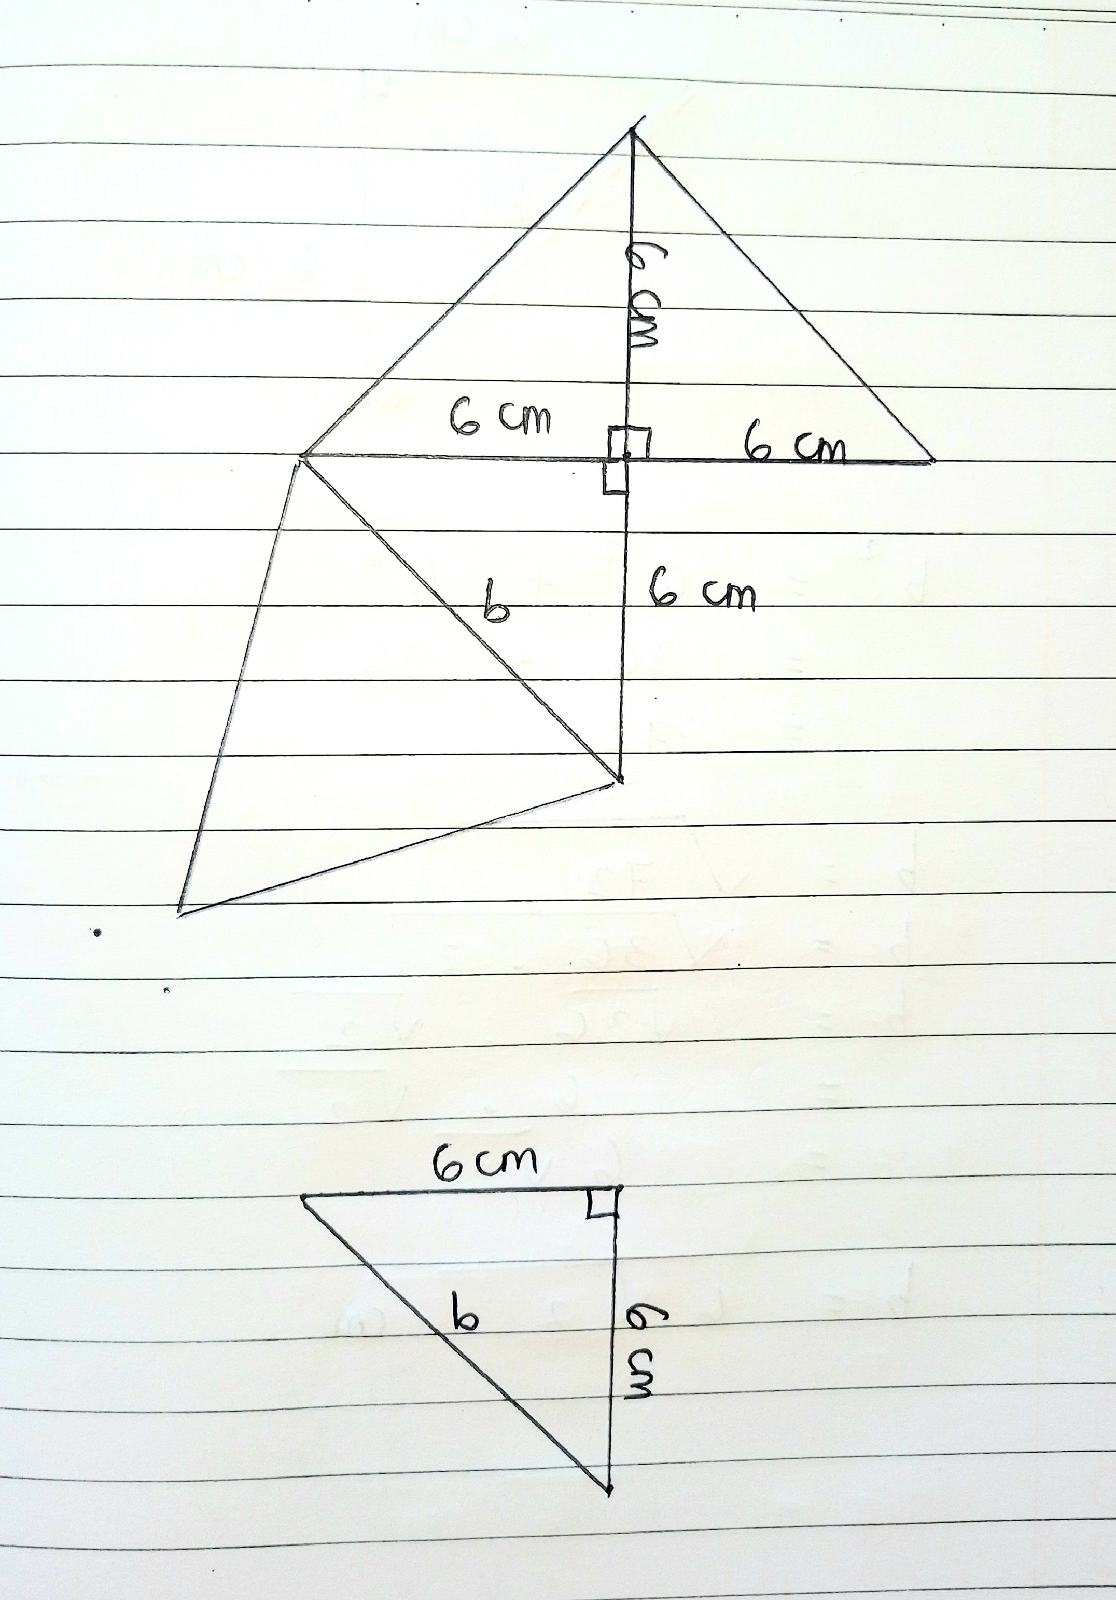 6 cm
6 cm
6 cm
b
6 cm
6 cm
b
6 cm